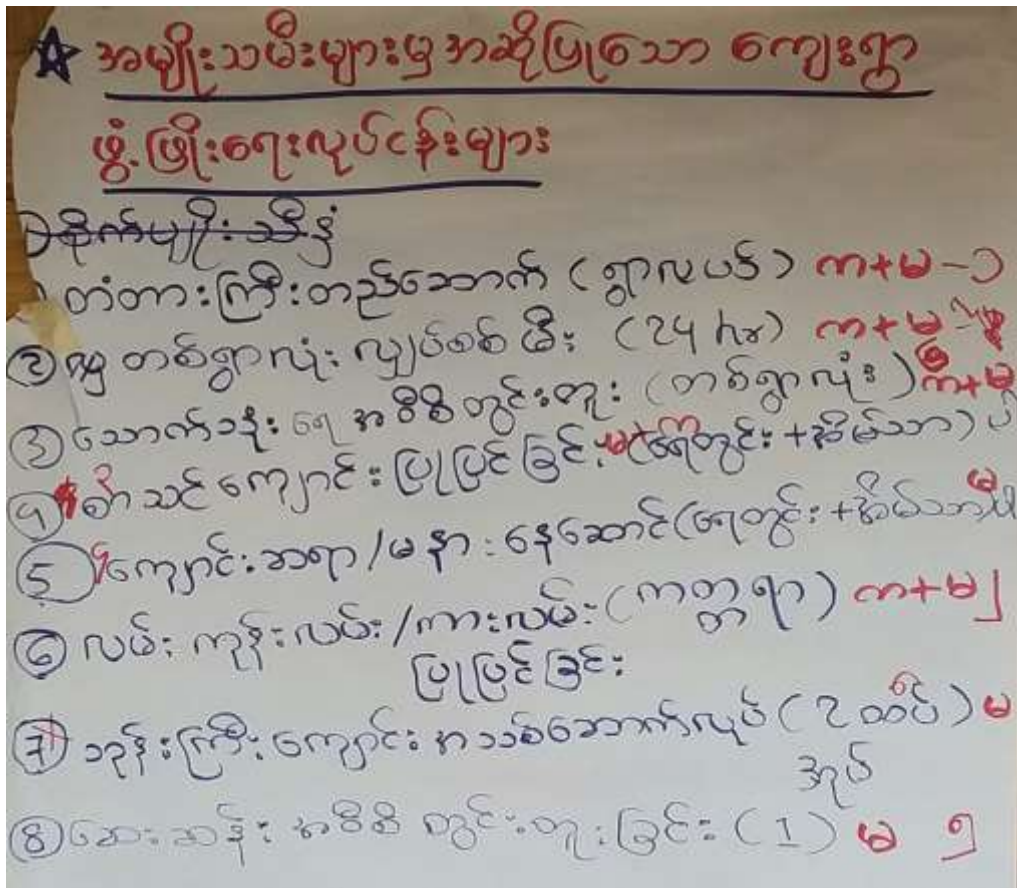 အမျိုးသမီးများမှ အဆိုပြုသော ကျေးရွာ
ဖွံ့ဖြိုးရေးလုပ်ငန်းများ
တံတားကြီးတည်ဆောက် (ရွာလယ်) က+မ-၁
② တစ်ရွာလုံး လျှပ်စစ် မီး (24 hr) က+မ
③ သောက်သုံး ရေ အဝီစိ တွင်းတူး (တစ်ရွာလုံး) က+မ
၄ စာ သင် ကျောင်း ပြုပြင် ခြင်း (ရေတွင်း + အိမ်သာ)
⑤ ကျောင်းဆရာ/မ နား နေဆောင် (ရေတွင်း + အိမ်သာ
⑥ လမ်း ကုန်းလမ်း/ကားလမ်း (ကတ္တရာ) က+မ
ပြုပြင် ခြင်း
⑦ ဘုန်းကြီး ကျောင်း အသစ်ဆောက်လုပ် (2 ထပ်) မ
အုပ်
⑧ ဆေး ခန်း အဝီစိ တွင်း တူး ခြင်း (1) မ ၅